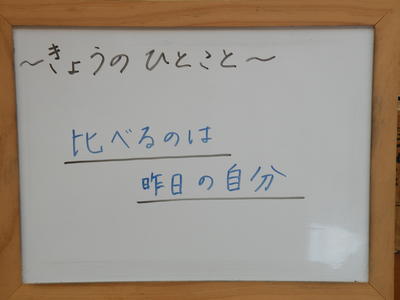 ～きょうのひとこと～
比べるのは
昨日の自分